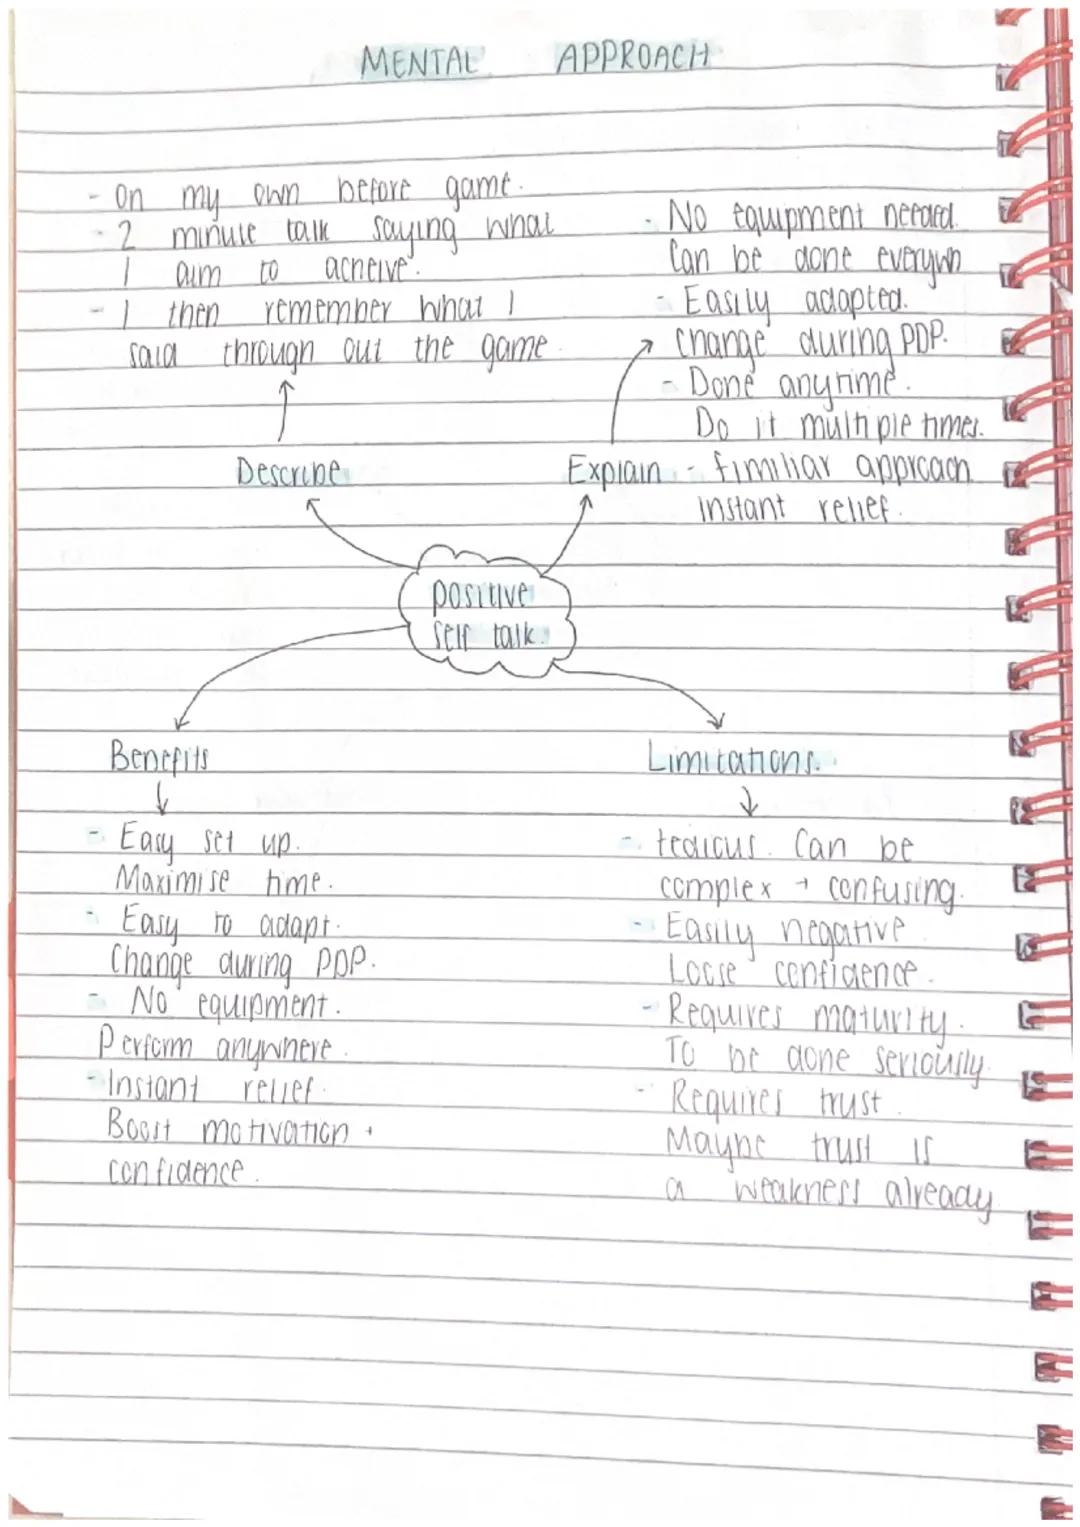 MENTAL APPROACH
- On my own before game.
- 2 minute talk saying what
I aim to acheive.
- I then remember what I
said through out the game.
Describe
- No equipment needed.
Can be done everywh
- Easily adapted.
Change during PDP.
- Done anytime.
Do it multiple times.
Explain - fimiliar approach
instant relief.
positive
self talk.
Benefits
- Easy set up.
Maximise time.
- Easy to adapt.
Change during PDP.
- No equipment.
Perform anywhere.
- Instant relief.
Boost motivation +
confidence.
Limitations.
- tedious. Can be
complex + confusing.
- Easily negative.
Loose confidence.
- Requires maturity.
To be done seriously.
- Requires trust.
Maybe trust is
a weakness already